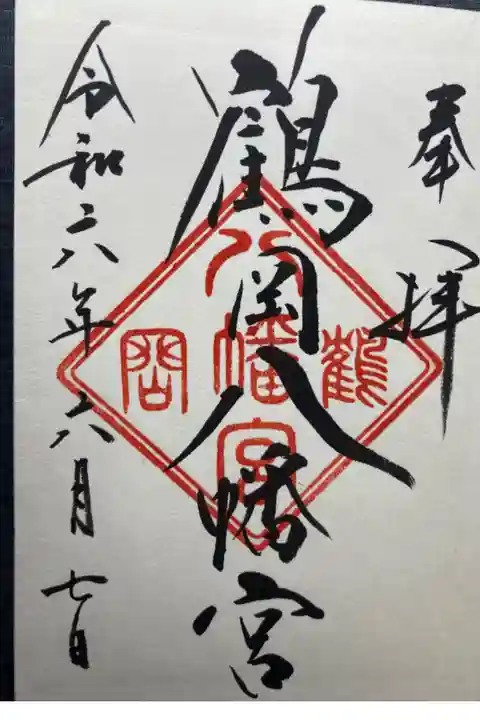 奉拝
鶴岡八幡宮
令和六年六月七日
鶴
八幡宮
岡